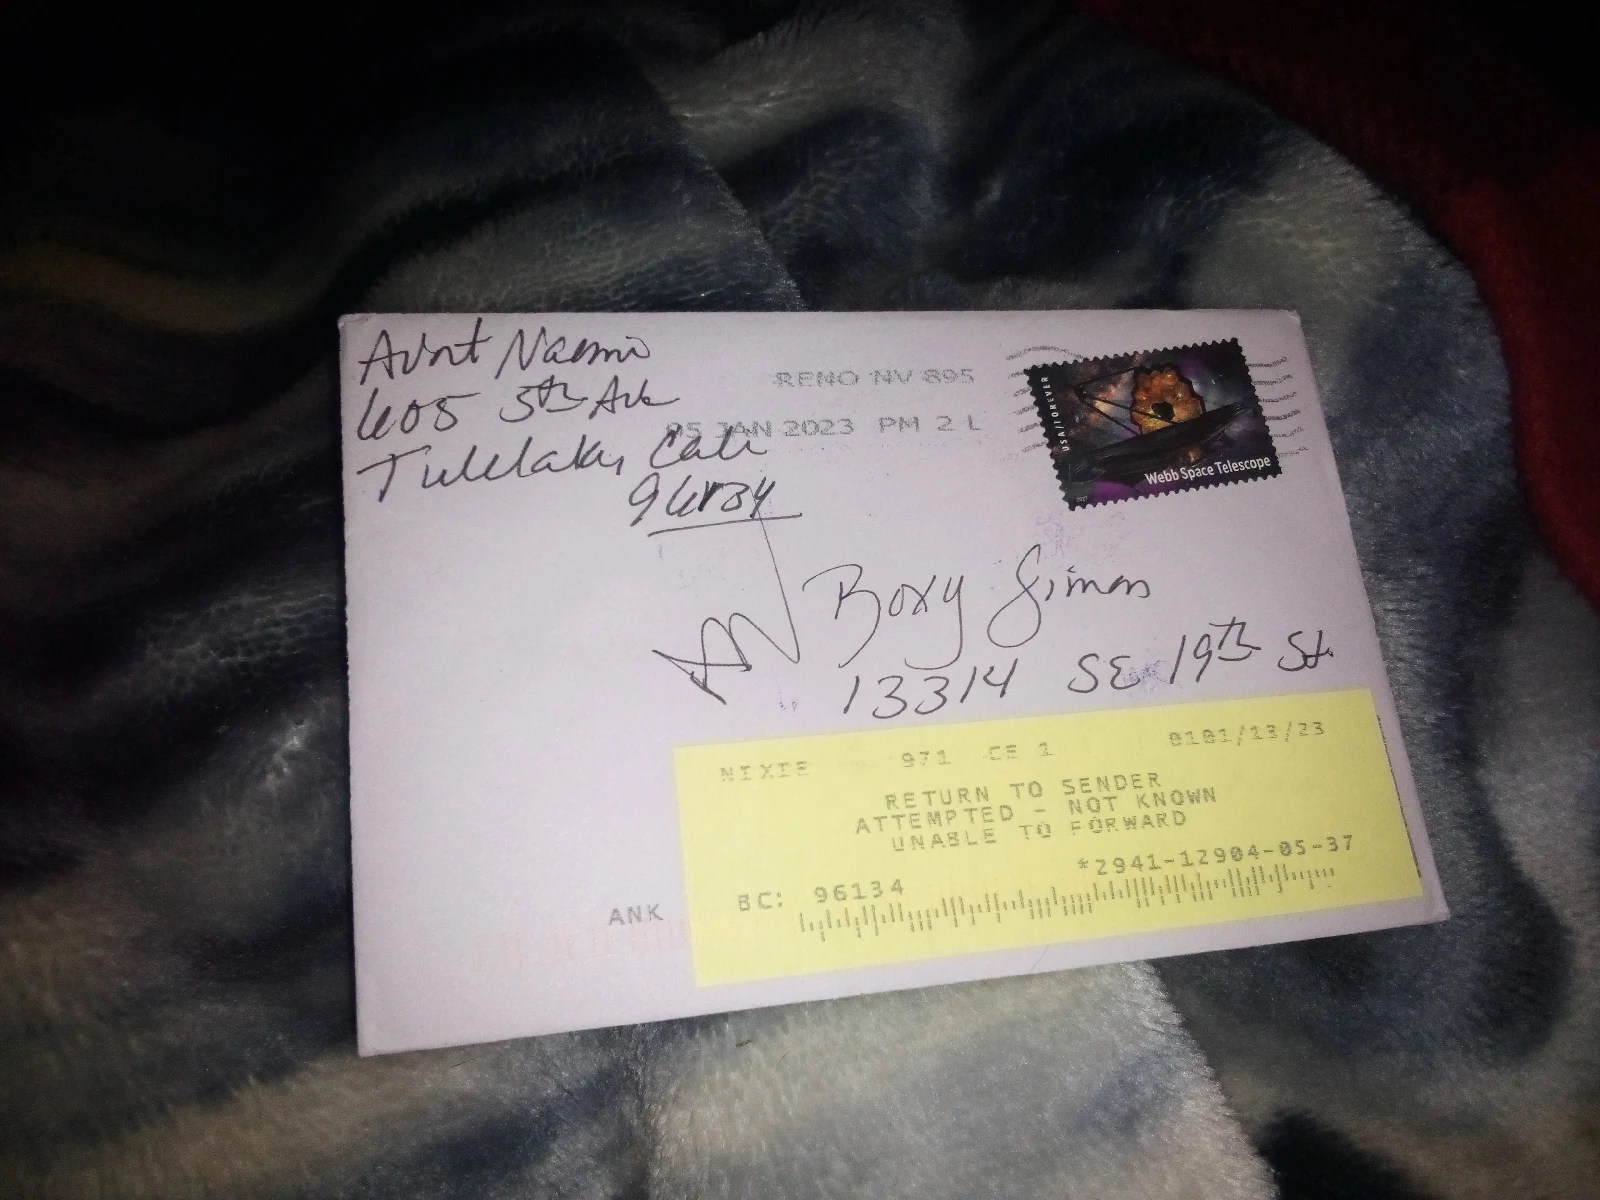 Aunt Naomi
605 5th Ave
Tulelake, Cali
96134
RENO NV 895
05 JAN 2023 PM 2 L
USA/FOREVER
Webb Space Telescope
Boxy Simon
13314 SE 19th St.
NIXIE 971 CE 1 0101/13/23
RETURN TO SENDER
ATTEMPTED - NOT KNOWN
UNABLE TO FORWARD
BC: 96134 *2941-12904-05-37
ANK